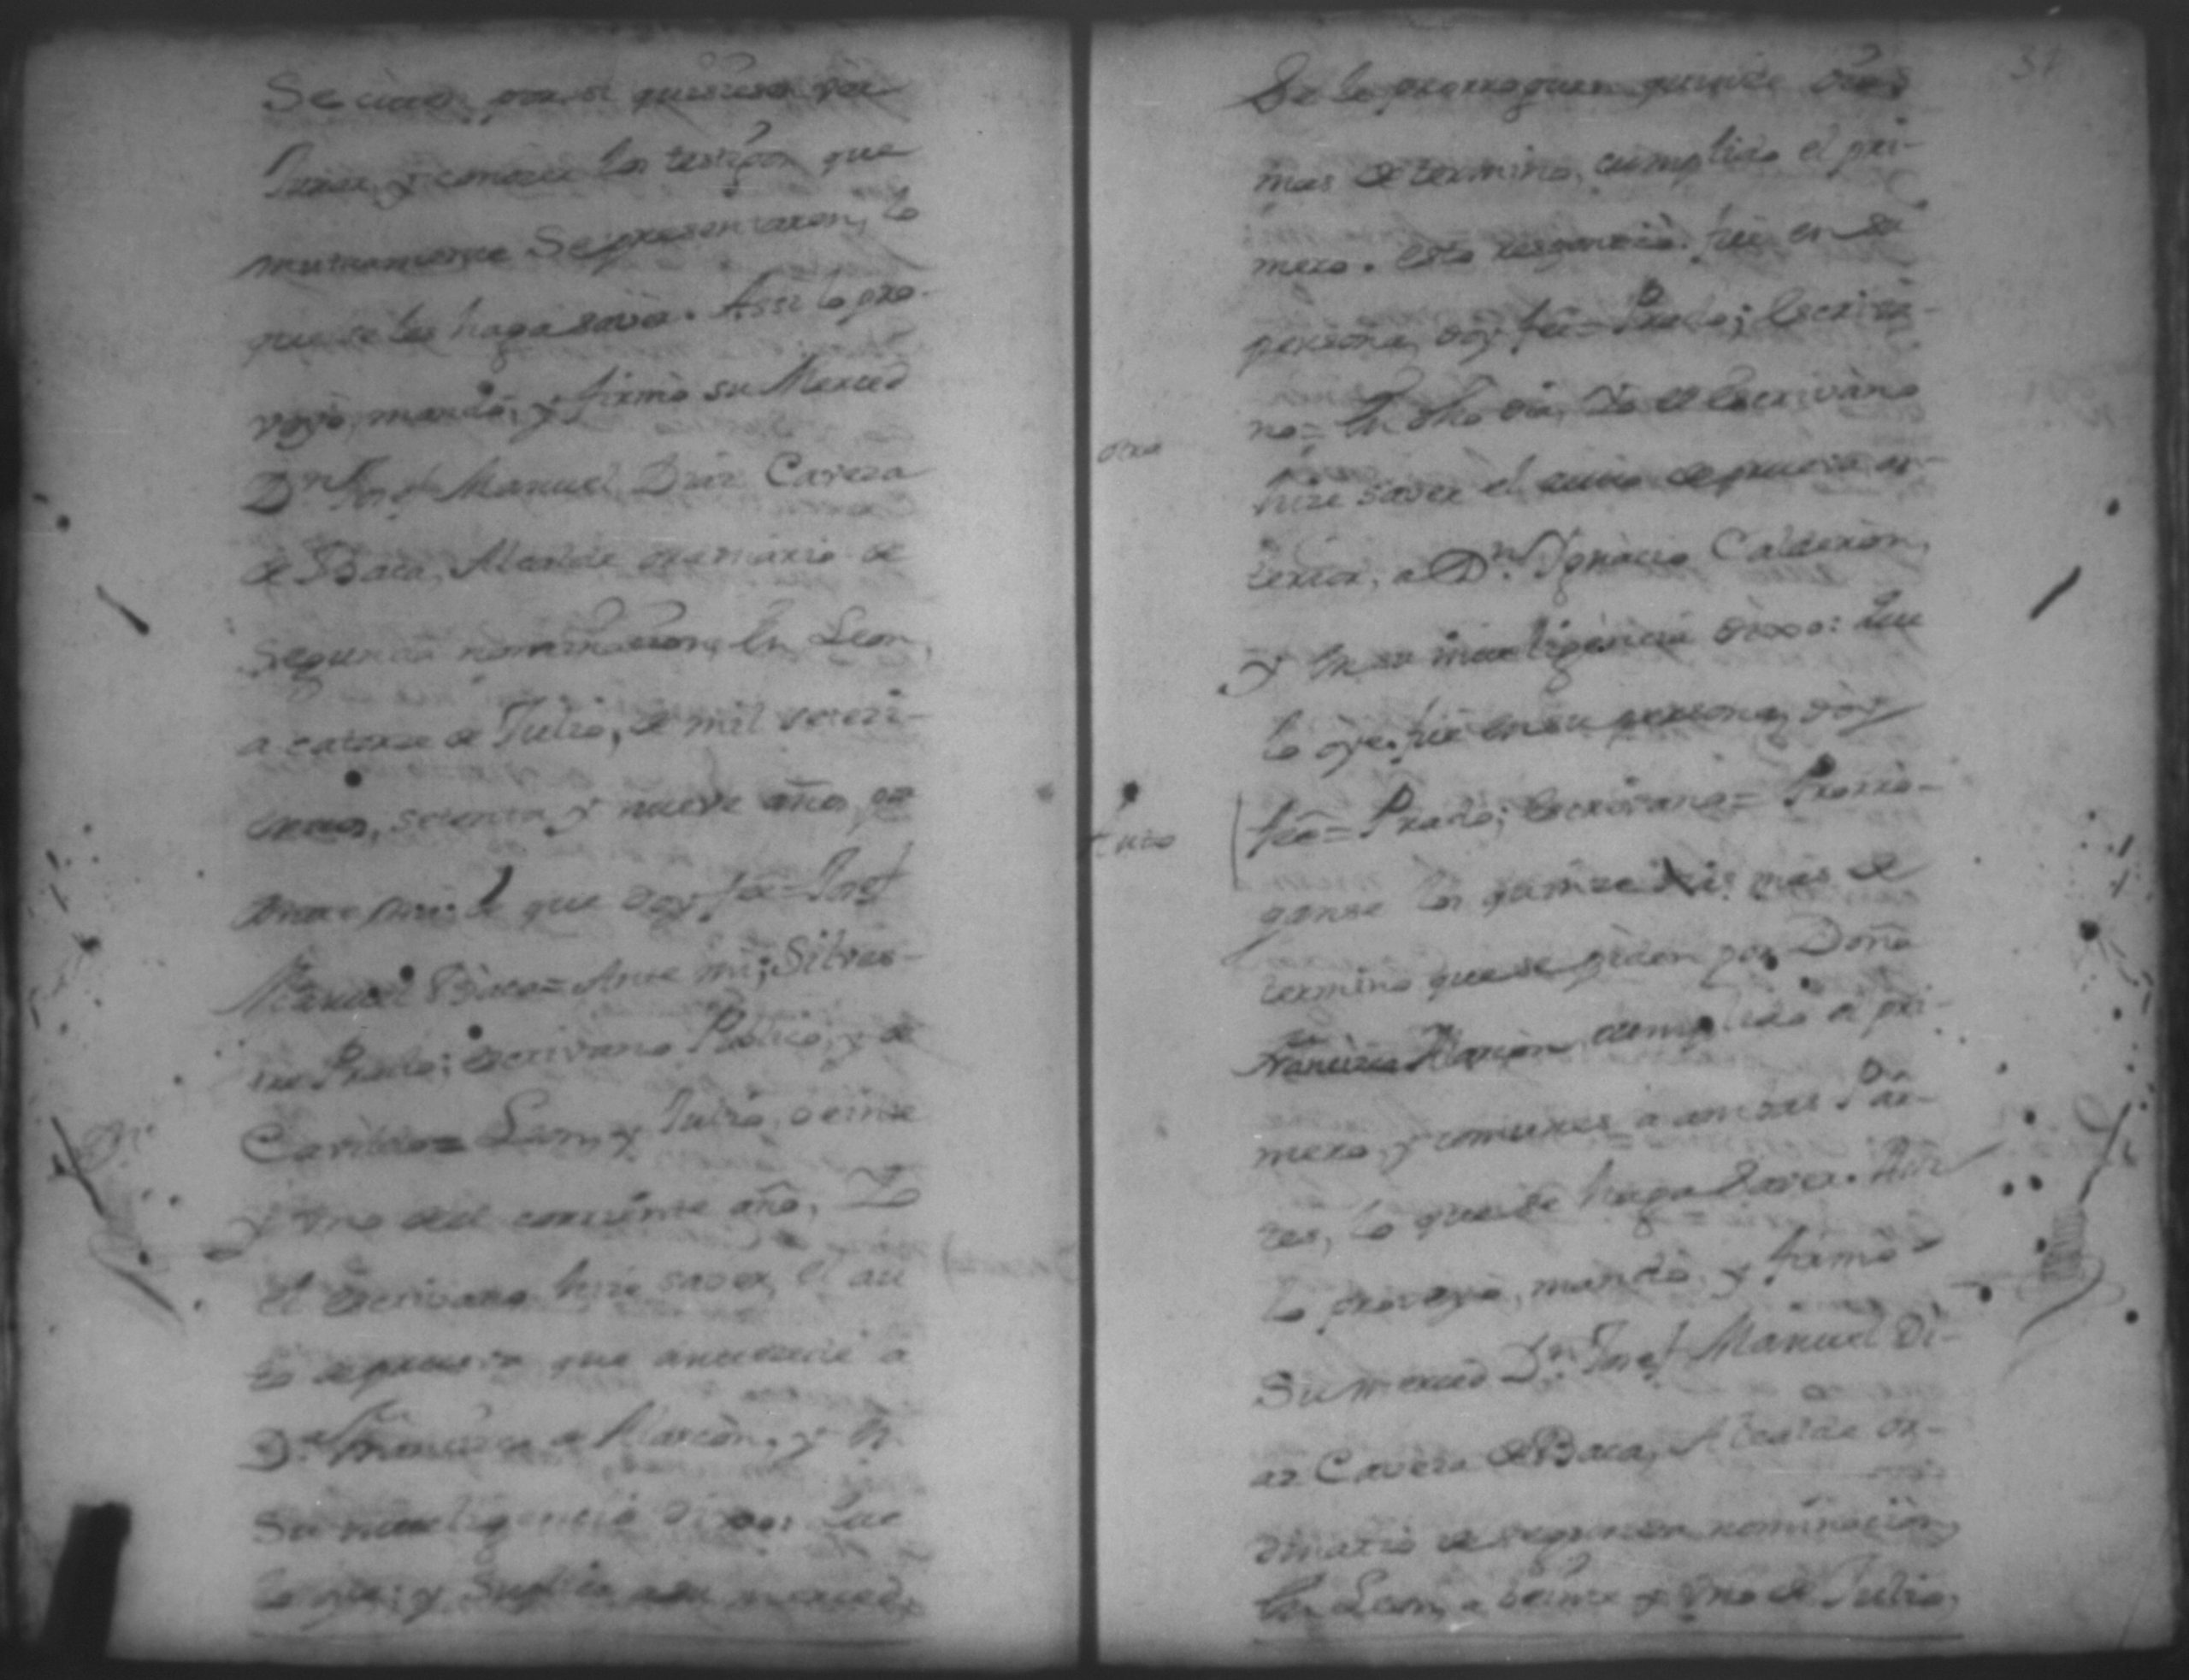 Se citen para si quisieren ver
Jurar, y conocer los testigos que
mutuamente Se presentaren, lo
que se les haga saver. Assi lo pro-
veyò, mandò, y firmò su Merced
Dn. Josef Manuel Diaz Caveza
de Baca, Alcalde ordinario de
Segunda nominacion, En Leon,
a catorze de Julio, de mil seteci-
entos, setenta y nueve años, por
ante mi de que doy feè = Josef
Manuel Baca = Ante mi; Silves-
tre Prado; Escrivano Publico, y de
Cavildo = Leon, y Julio, veinte
y uno del corriente año, Yo
el Escrivano hize saver, el au
to de prueva que antecede à
Da. Francisca de Alarcòn, y En
Su inteligencia dixo: Que
lo oye: y Suplica a su merced,
31
Se le prorroguen quince dias
mas de termino, cumplido el pri-
mero. Esto respondiò. fuè en su
persona, doy feè = Prado; Escriva-
no =
otra
En dho dia, Yo el Escrivano
hize saver el auto de prueva an-
terior, a Dn. Ygnacio Calderòn,
y En su inteligencia dixo: Que
lo oye. fuè en su persona, dòy
feè = Prado; Escrivano =
Auto
Prorro-
ganse los quinze dias mas de
termino que se piden por Doña
Francisca Alarcon cumplido el pri-
mero, y comunes a ambas Par-
tes, lo que se haga Saver. Assi
lo proveyò, mandò, y firmò
Su merced Dn. Josef Manuel Di-
az Caveza de Baca, Alcalde or-
dinario de segunda nominaciòn,
En Leon, a veinte y uno de Julio,